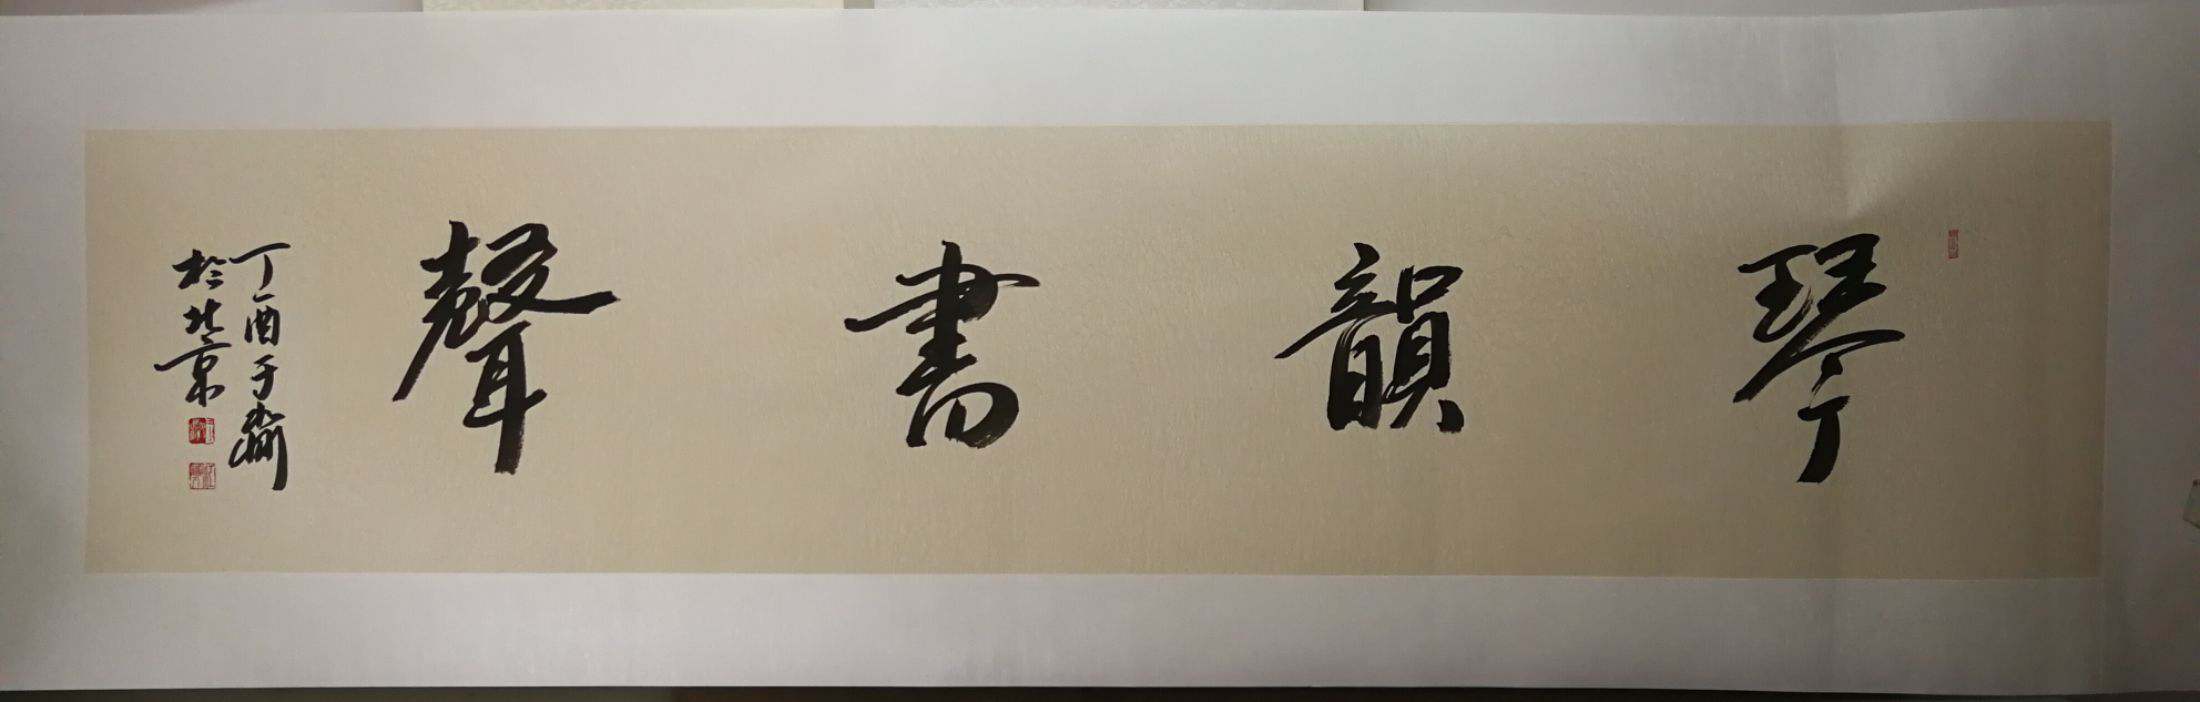 琴韻書聲
丁酉于
於北京